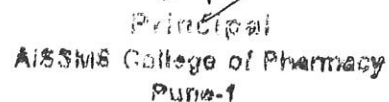 Principal
AISSMS College of Pharmacy
Pune-1